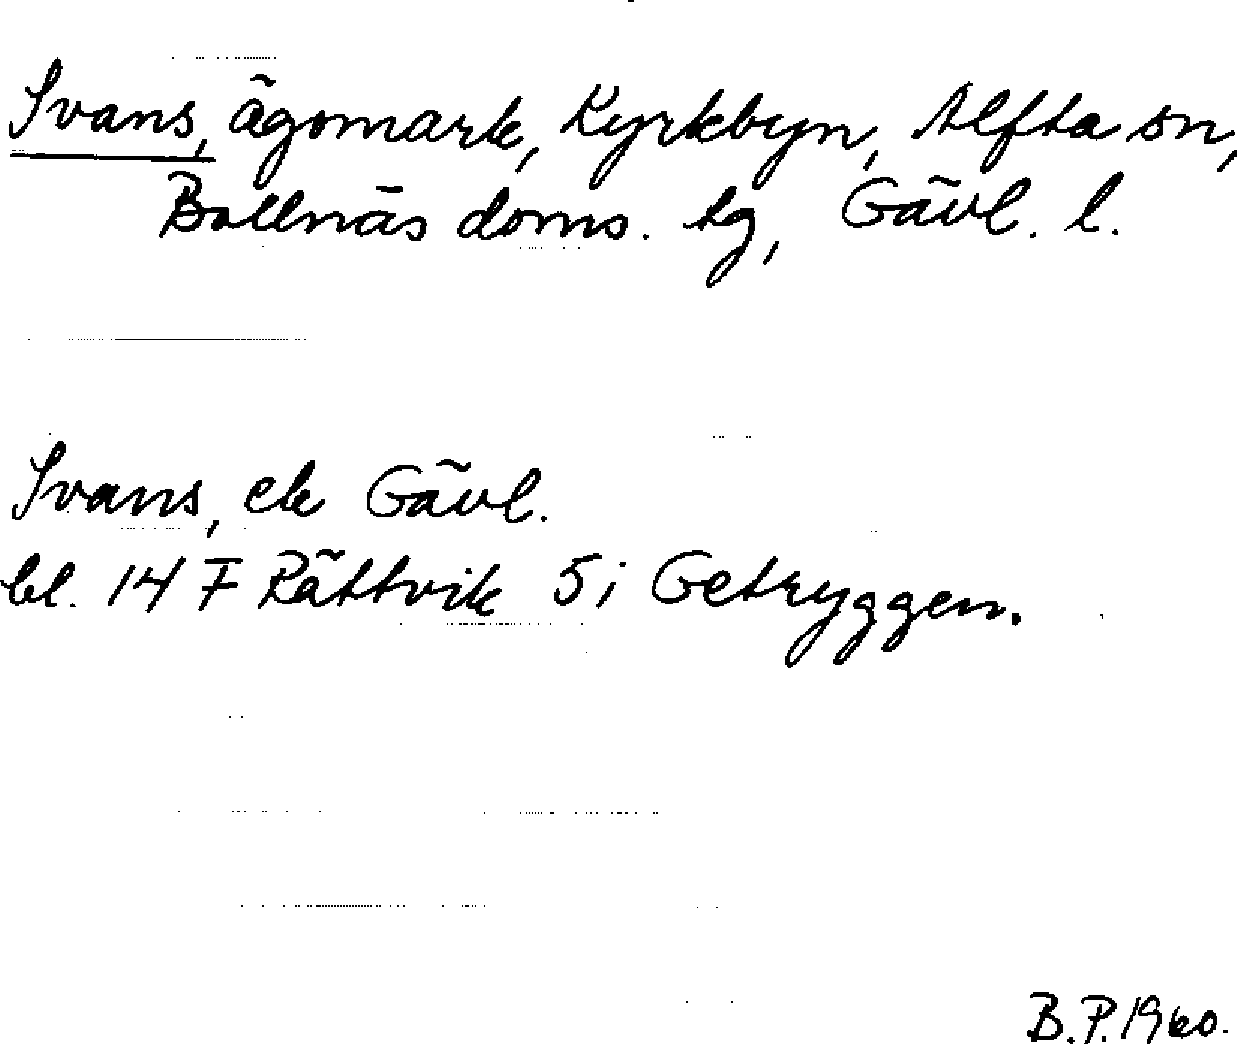 Ivans, ägomark, Kyrkbyn, Alfta sn,
Bollnäs doms. tg, Gävl. l.
Ivans, ek Gävl.
bl. 14 F Rättvik 5; Getryggen.
B.P. 1960.